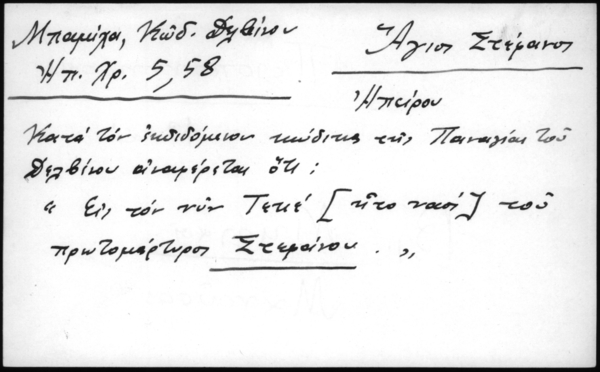 Μπαμίχα, Κώδ. Δελβίνου
Ἠπ. Χρ. 5, 58
Ἅγιος Στέφανος
Ἠπείρου
Κατά τόν ἐκδιδόμενον κώδικα τῆς Παναγίας τοῦ
Δελβίνου ἀναφέρεται ὅτι :
" Εἰς τόν νῦν Τεκέ [ ἦτο ναός ] τοῦ
πρωτομάρτυρος Στεφάνου . "